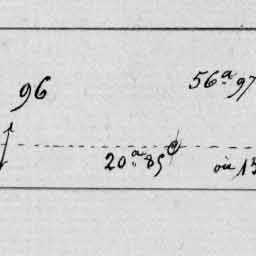 96
56ᵃ 97
20ᵃ 85
où 15